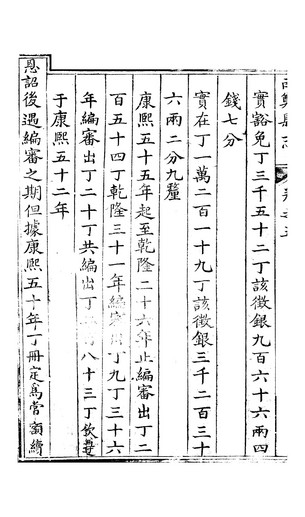 實豁免丁三千五十二丁該徵銀九百六十六兩四
錢七分
實在丁一萬二百一十九丁該徵銀三千二百三十
六兩二分九釐
康熙五十五年起至乾隆二十六年止編審出丁二
百五十四丁乾隆三十一年編 丁九丁三十六
年編審出丁二十丁共編出丁 八十三丁欽遵
于康熙五十二年
恩詔後遇編審之期但據康熙五十年丁冊定為常額續